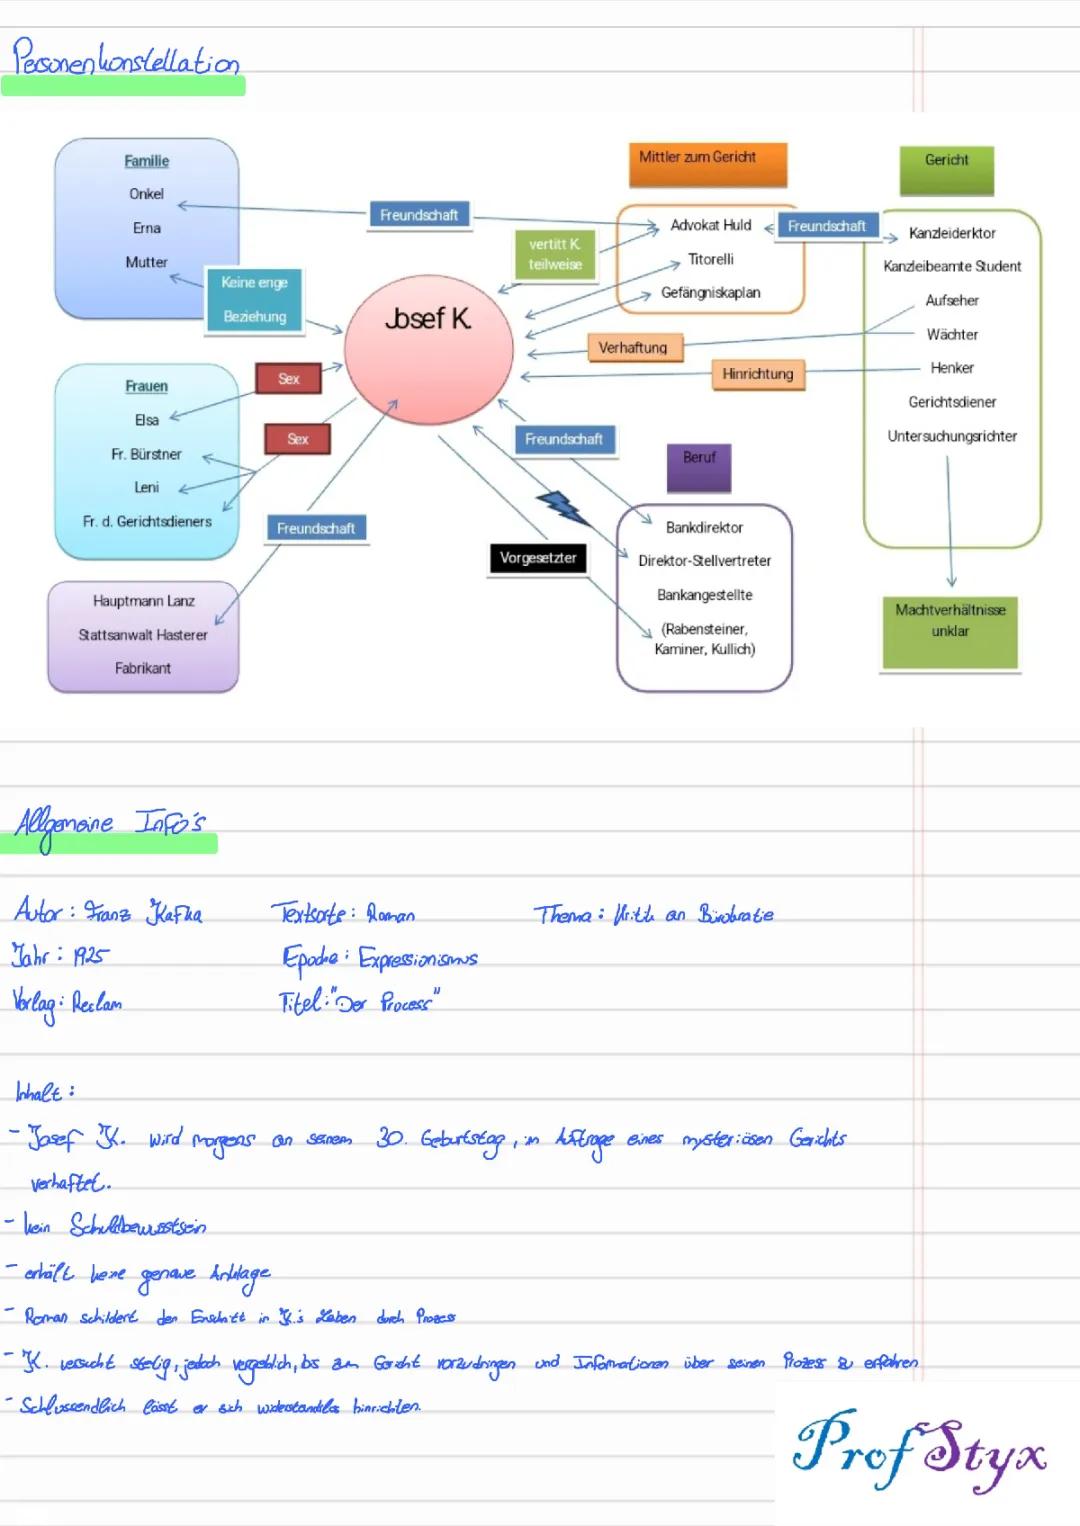 Personenkonstellation
Familie
Onkel
Erna
Mutter
Freundschaft
Keine enge
Beziehung
Mittler zum Gericht
Gericht
vertitt K.
teilweise
Advokat Huld
Titorelli
Gefängniskaplan
Freundschaft
Kanzleiderktor
Kanzleibeamte Student
Aufseher
Wächter
Henker
Gerichtsdiener
Untersuchungsrichter
Josef K.
Verhaftung
Hinrichtung
Frauen
Elsa
Fr. Bürstner
Leni
Fr. d. Gerichtsdieners
Sex
Sex
Freundschaft
Freundschaft
Beruf
Vorgesetzter
Bankdirektor
Direktor-Stellvertreter
Bankangestellte
(Rabensteiner,
Kaminer, Kullich)
Machtverhältnisse
unklar
Hauptmann Lanz
Stattsanwalt Hasterer
Fabrikant
Allgemeine Info's
Autor: Franz Kafka Textsorte: Roman Thema: Kritik an Bürokratie
Jahr: 1925 Epoche: Expressionismus
Verlag: Reclam Titel: "Der Process"
Inhalt:
- Josef K. wird morgens an seinem 30. Geburtstag, im Auftrage eines mysteriösen Gerichts
verhaftet.
- kein Schuldbewusstsein
- erhält keine genaue Anklage
- Roman schildert den Einschnitt in K.'s Leben durch Prozess
- K. versucht stetig, jedoch vergeblich, bis zum Gericht vorzudringen und Informationen über seinen Prozess zu erfahren
- Schlussendlich lässt er sich widerstandslos hinrichten.
Prof Styx